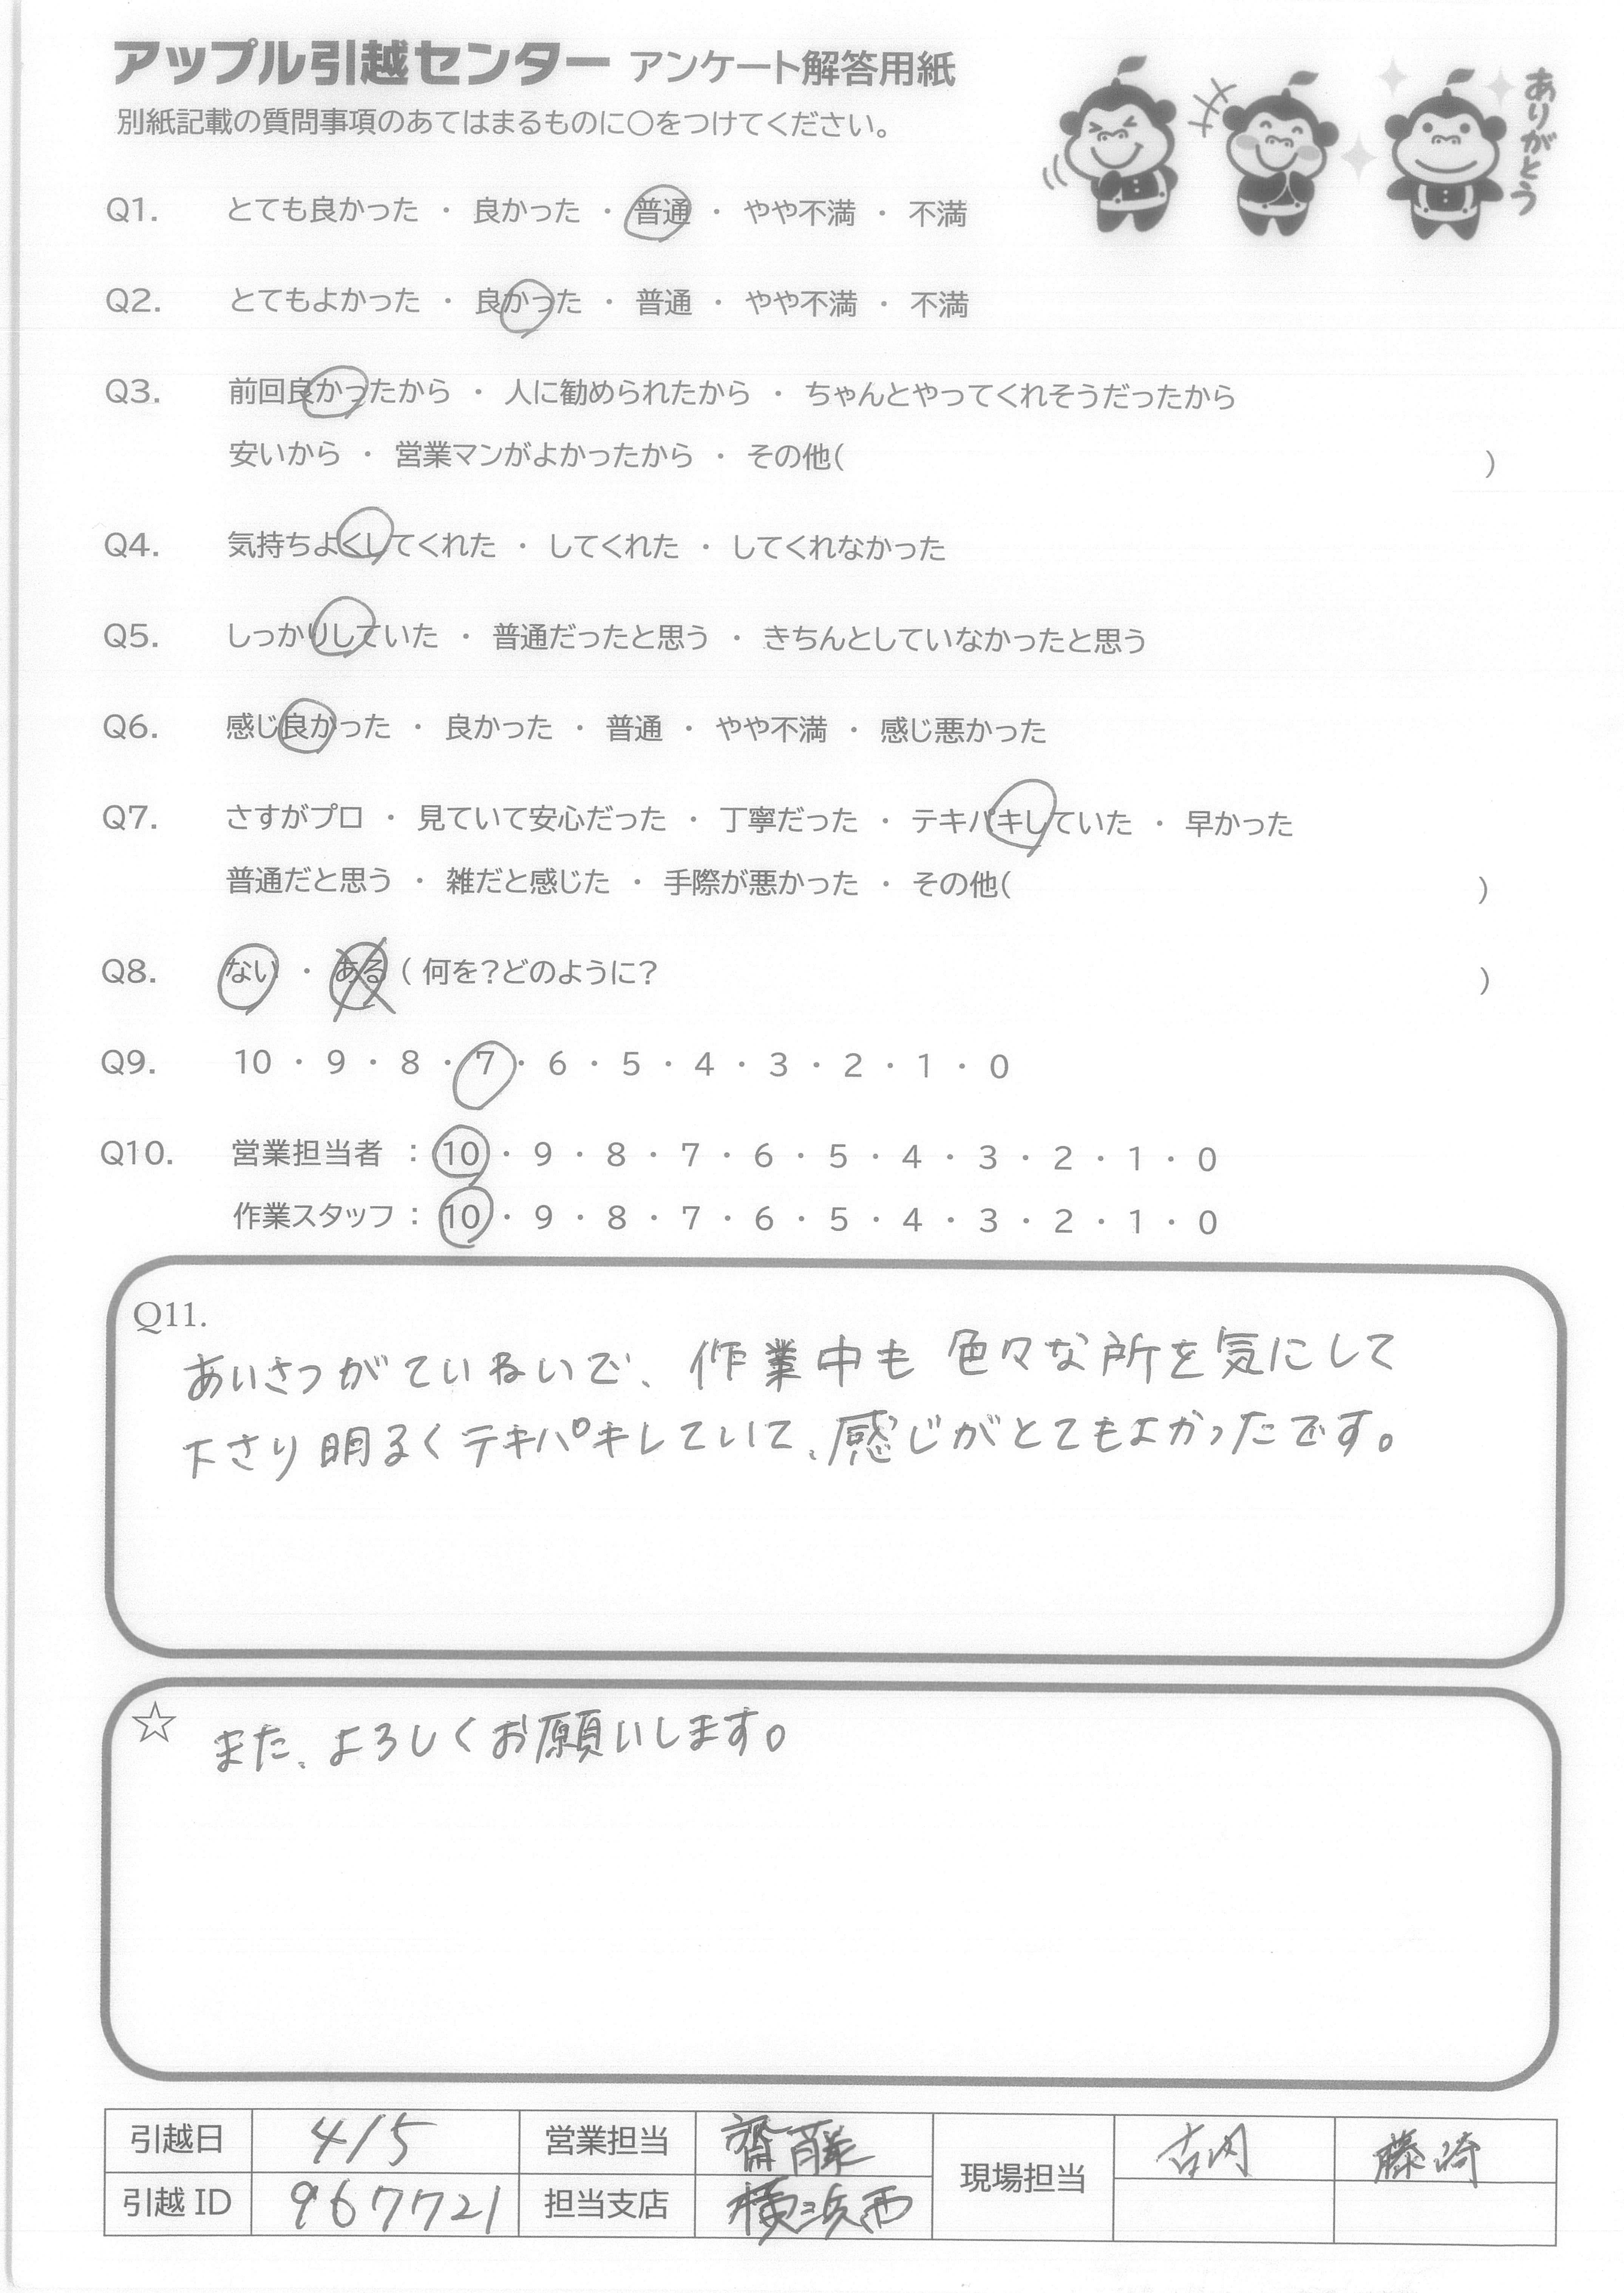 アップル引越センター アンケート解答用紙
別紙記載の質問事項のあてはまるものに○をつけてください。
ありがとう
Q1. とても良かった ・ 良かった ・ 普通 ・ やや不満 ・ 不満
Q2. とてもよかった ・ 良かった ・ 普通 ・ やや不満 ・ 不満
Q3. 前回良かったから ・ 人に勧められたから ・ ちゃんとやってくれそうだったから
安いから ・ 営業マンがよかったから ・ その他( )
Q4. 気持ちよくしてくれた ・ してくれた ・ してくれなかった
Q5. しっかりしていた ・ 普通だったと思う ・ きちんとしていなかったと思う
Q6. 感じ良かった ・ 良かった ・ 普通 ・ やや不満 ・ 感じ悪かった
Q7. さすがプロ ・ 見ていて安心だった ・ 丁寧だった ・ テキパキしていた ・ 早かった
普通だと思う ・ 雑だと感じた ・ 手際が悪かった ・ その他( )
Q8. ない ・ ある ( 何を?どのように? )
Q9. 10 ・ 9 ・ 8 ・ 7 ・ 6 ・ 5 ・ 4 ・ 3 ・ 2 ・ 1 ・ 0
Q10. 営業担当者 : 10 ・ 9 ・ 8 ・ 7 ・ 6 ・ 5 ・ 4 ・ 3 ・ 2 ・ 1 ・ 0
作業スタッフ : 10 ・ 9 ・ 8 ・ 7 ・ 6 ・ 5 ・ 4 ・ 3 ・ 2 ・ 1 ・ 0
Q11.
あいさつがていねいで、作業中も色々な所を気にして
下さり明るくテキパキしていて、感じがとてもよかったです。
☆ また、よろしくお願いします。
引越日 4/5 営業担当 齋藤 現場担当 古内 藤崎
引越ID 967721 担当支店 横浜西